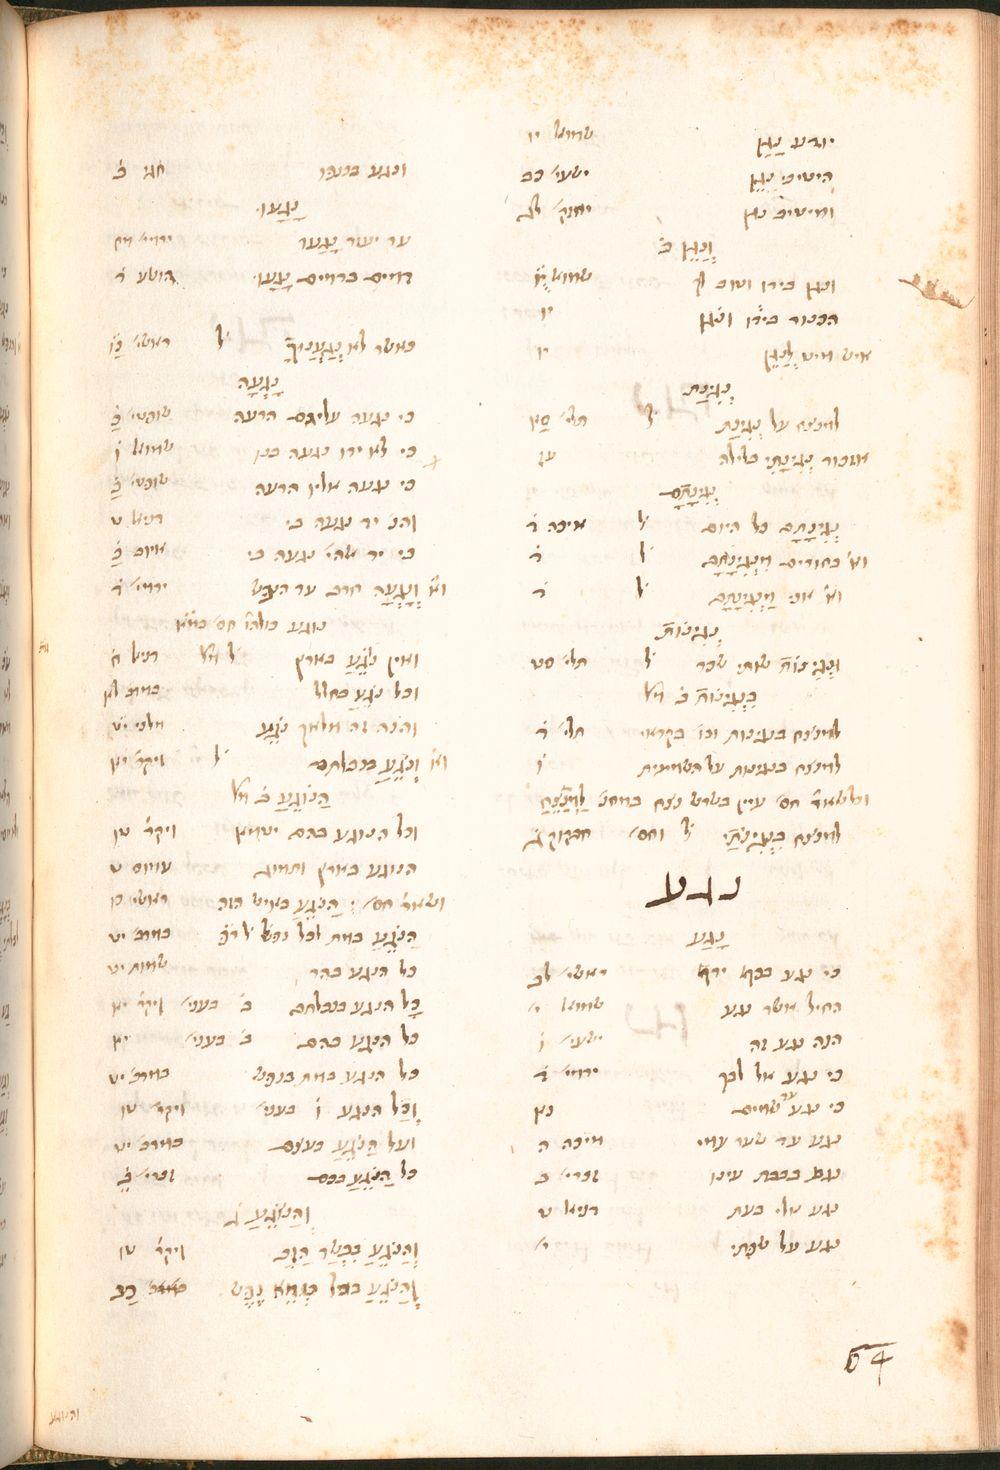 יודע נַגֵּן שמואל יו
היטיבי נַגֵּן ישעי׳ כג
ומיטיב נגן יחזק׳ לג
וְנַגֵּן ב׳
ונגן בידו וטוב לך שמואל יו
הכנור בידו ונגן יו
איש מיטיב לְנַגֵּן יו
נְגִינַת
למנצח על נְגִינַת ל׳ תלי׳ סא
אזכור נְגִינָתִי בלילה עז
נְגִינָתָם
נְגִינָתָם כל היום ל׳ איכה ג׳
וא׳ בחורים מִנְּגִינָתָם ל׳ ה׳
וא׳ אני מַנְגִּינָתָם ל׳ ג׳
נְגִינוֹת
וּנְגִינוֹת שותי שכר ל׳ תלי׳ סט
בִּנְגִינוֹת ב׳ מל׳
למנצח בנגינות וכו׳ בקראי תלי׳ ד׳
למנצח בנגינות על השמינית ו׳
וכל שאר׳ חס׳ עיין בשרש נצח במחנ׳ לַמְנַצֵּחַ
למנצח בִּנְגִינוֹתָי ל׳ וחס׳ חבקוק ג׳
נגע
נָגַע
כי נגע בכף ירך ראשי׳ לב
החיל אשר נגע שמואל י׳
הנה נגע זה ישעי׳ ו׳
כי נגע אל לבך ירמי׳ ד׳
כי נגע עד שמים נא
נגע עד שער עמי מיכה א
נגע בבבת עינו זכרי׳ ב
נגע אלי בעת דניאל ט
נגע על שפתי י׳
ונגע בכנפו חגי ב׳
נָגַעוּ
עד יעזר נָגָעוּ ירמי׳ מח
דמים בדמים נָגָעוּ הושע ד׳
כאשר לא נְגַעֲנוּךָ ל׳ ראשי׳ כו׳
נָגְעָה
כי נגעה עליהם הרעה שופטי׳ כ׳
כי לא ידו נגעה בנו שמואל ו׳
כי נגעה אליו הרעה שופטי׳ כ׳
והנ׳ יד נגעה בי דניאל י
כי יד אלהי׳ נגעה בי איוב יט
וא׳ וְנָגְעָה חרב עד הנפש ירמי׳ ד׳
נוגע כולהו חס׳ במ״א
ואין נוֹגֵעַ בארץ ל׳ מל׳ דניאל ח׳
וכל נֹגֵעַ בחלל במדב׳ לא
והנה זה מלאך נֹגֵעַ מלכי׳ יט
וא׳ וְנֹגֵעַ בנבלתם ל׳ ויקר׳ יא
הַנּוֹגֵעַ ב׳ מל׳
וכל הנוגע בהם יטמא ויקר׳ טו
הנוגע בארץ ותמוג עמוס ט
ושאר׳ חס׳: הַנֹּגֵעַ באיש הזה ראשי׳ כו
הַנֹּגֵעַ במת לכל נפש במדב׳ יט
כל הנגע בהר שמות יט
כָּל הנגע בנבלתם ב׳ בעני׳ ויקר׳ יא
כל הנגע בהם ב׳ בעני׳ יא
כל הנגע במת בנפש במדב׳ יט
וְכָל הנגע ו׳ בעני׳ ויקר׳ טו
ועל הַנֹּגֵעַ בעצם במדב׳ יט
כל הַנֹּגֵעַ בכם זכרי׳ ב׳
וְהַנֹּגֵעַ ג׳
וְהַנֹּגֵעַ בִּבְשַׂר הַזָּב ויקר׳ טו
וְהַנֹּגֵעַ בכל טְמֵא נֶפֶשׁ כב
64
והנוגע